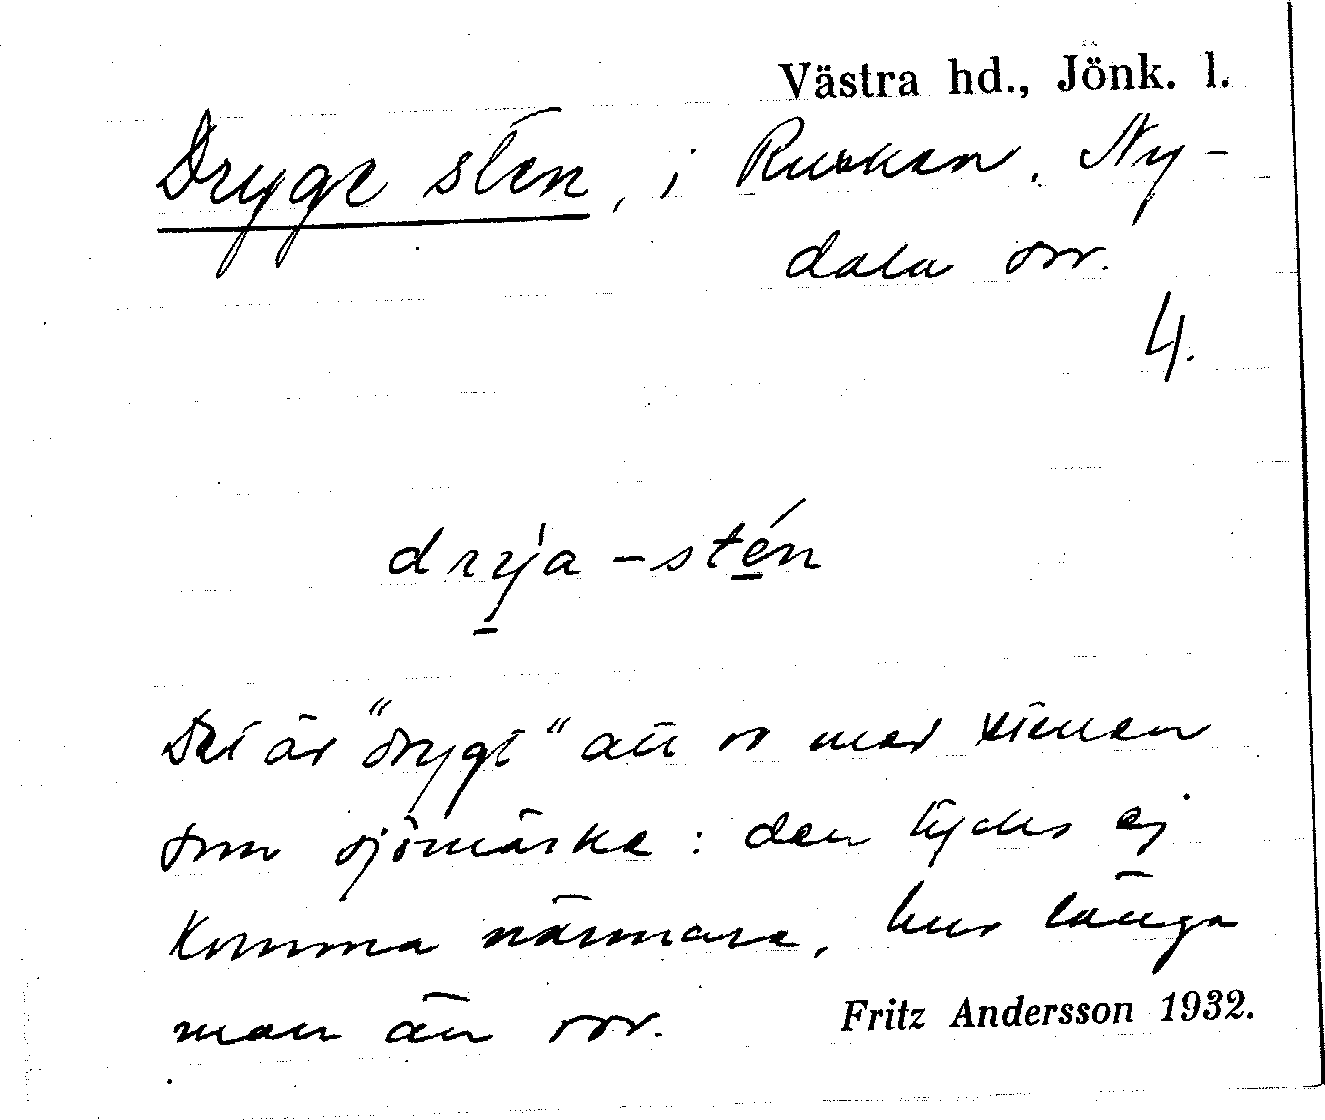 Västra hd., Jönk. l.
Dryge sten, i Rusken. Ny-
dala srr.
4.
drýa - stén
Det är "drygt" att ro med stenen
som sjömärke: den tycks ej
komma närmare, hur länge
man än ror.
Fritz Andersson 1932.